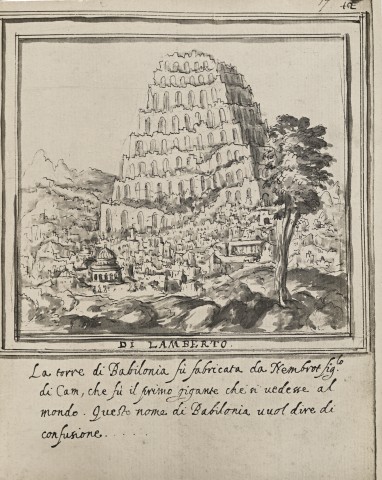 17
DI LAMBERTO.
La torre di Babilonia fù fabricata da Nembrot figlo
di Cam, che fù il primo gigante che si vedesse al
mondo. Questo nome di Babilonia vuol dire di
confusione.....